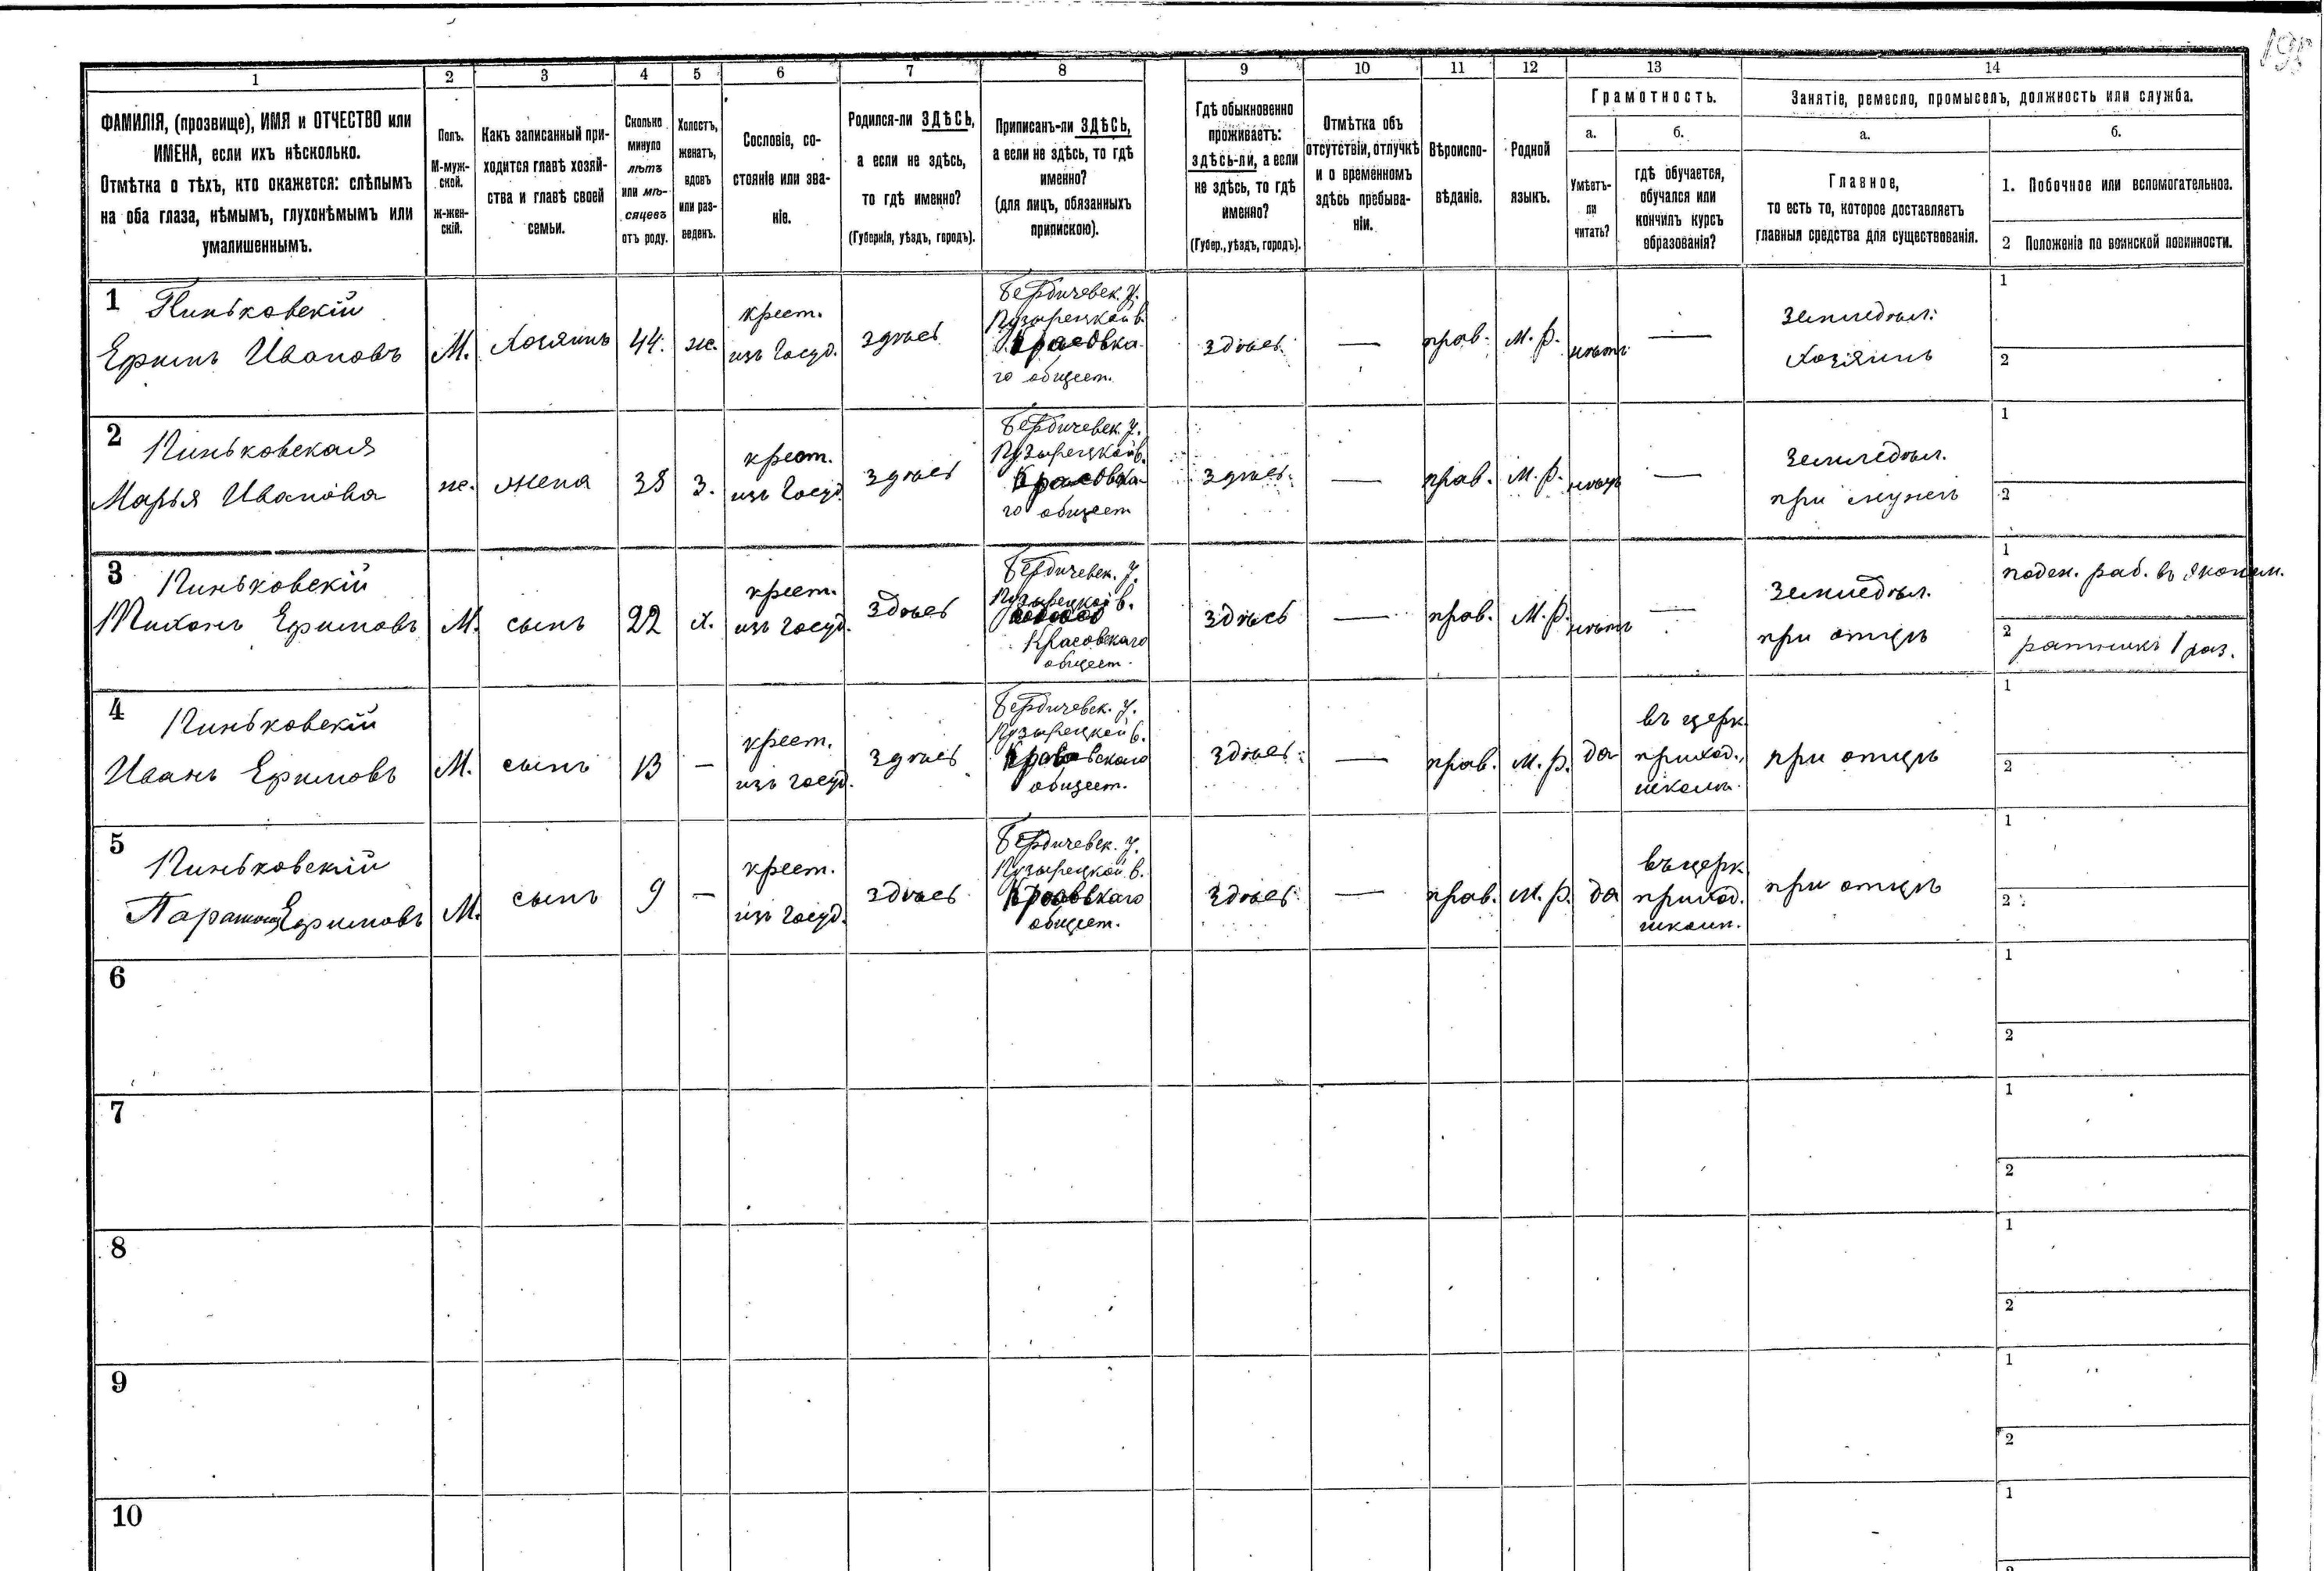 195
1 2 3 4 5 6 7 8 9 10 11 12 13 14
ФАМИЛІЯ, (прозвище), ИМЯ и ОТЧЕСТВО или
ИМЕНА, если ихъ нѣсколько.
Отмѣтка о тѣхъ, кто окажется: слѣпымъ
на оба глаза, нѣмымъ, глухонѣмымъ или
умалишеннымъ.
Полъ.
М-муж-
ской.
Ж-жен-
скій.
Какъ записанный при-
ходится главѣ хозяй-
ства и главѣ своей
семьи.
Сколько
минуло
лѣтъ
или мѣ-
сяцевъ
отъ роду.
Холостъ,
женатъ,
вдовъ
или раз-
веденъ.
Сословіе, со-
стояніе или зва-
ніе.
Родился-ли ЗДѢСЬ,
а если не здѣсь,
то гдѣ именно?
(Губернія, уѣздъ, городъ).
Приписанъ-ли ЗДѢСЬ,
а если не здѣсь, то гдѣ
именно?
(для лицъ, обязанныхъ
припискою).
Гдѣ обыкновенно
проживаетъ:
здѣсь-ли, а если
не здѣсь, то гдѣ
именно?
(Губер., уѣздъ, городъ).
Отмѣтка объ
отсутствіи, отлучкѣ
и о временномъ
здѣсь пребыва-
ніи.
Вѣроиспо-
вѣданіе.
Родной
языкъ.
Грамотность.
а.
Умѣетъ-
ли
читать?
б.
гдѣ обучается,
обучался или
кончилъ курсъ
образованія?
Занятіе, ремесло, промыселъ, должность или служба.
а.
Главное,
то есть то, которое доставляетъ
главныя средства для существованія.
б.
1. Побочное или вспомогательное.
2 Положеніе по воинской повинности.
1 Пиньковскій
Ефимъ Ивановъ
М.
Хозяинъ
44.
ж.
крест.
изъ госуд.
здѣсь
Бердичевск. у.
Пузырецкой в.
Красовска
го общест.
здѣсь.
—
прав.
М. р.
нѣтъ
—
Земледѣл.
Хозяинъ
1
2
2 Пиньковская
Марья Иванова
ж.
жена
38
з.
крест.
изъ госуд
здѣсь
Бердичевск. у.
Пузырецкой в.
Красовска
го общест
здѣсь.
—
прав.
М. р.
нѣтъ
—
Земледѣл.
при мужѣ
1
2
3 Пиньковскій
Тихонъ Ефимовъ
М.
сынъ
22
х.
крест.
изъ госуд.
здѣсь
Бердичевск. у.
Пузырецкой в.
Красовскаго
общест.
здѣсь
—
прав.
М. р.
нѣтъ
—
Земледѣл.
при отцѣ
1 поден. раб. въ эконом.
2 ратникъ 1 раз.
4 Пиньковскій
Иванъ Ефимовъ
М.
сынъ
13
—
крест.
изъ госуд.
здѣсь
Бердичевск. у.
Пузырецкой в.
Красовскаго
общест.
здѣсь.
—
прав.
М. р.
да
въ церк.
приход.
школѣ.
при отцѣ
1
2
5 Пиньковскій
Ефимовъ
М.
сынъ
9
—
крест.
изъ госуд.
здѣсь
Бердичевск. у.
Пузырецкой в.
Красовскаго
общест.
здѣсь.
—
прав.
М. р.
да
въ церк.
приход.
школѣ.
при отцѣ
1
2
6
1
2
7
1
2
8
1
2
9
1
2
10
1